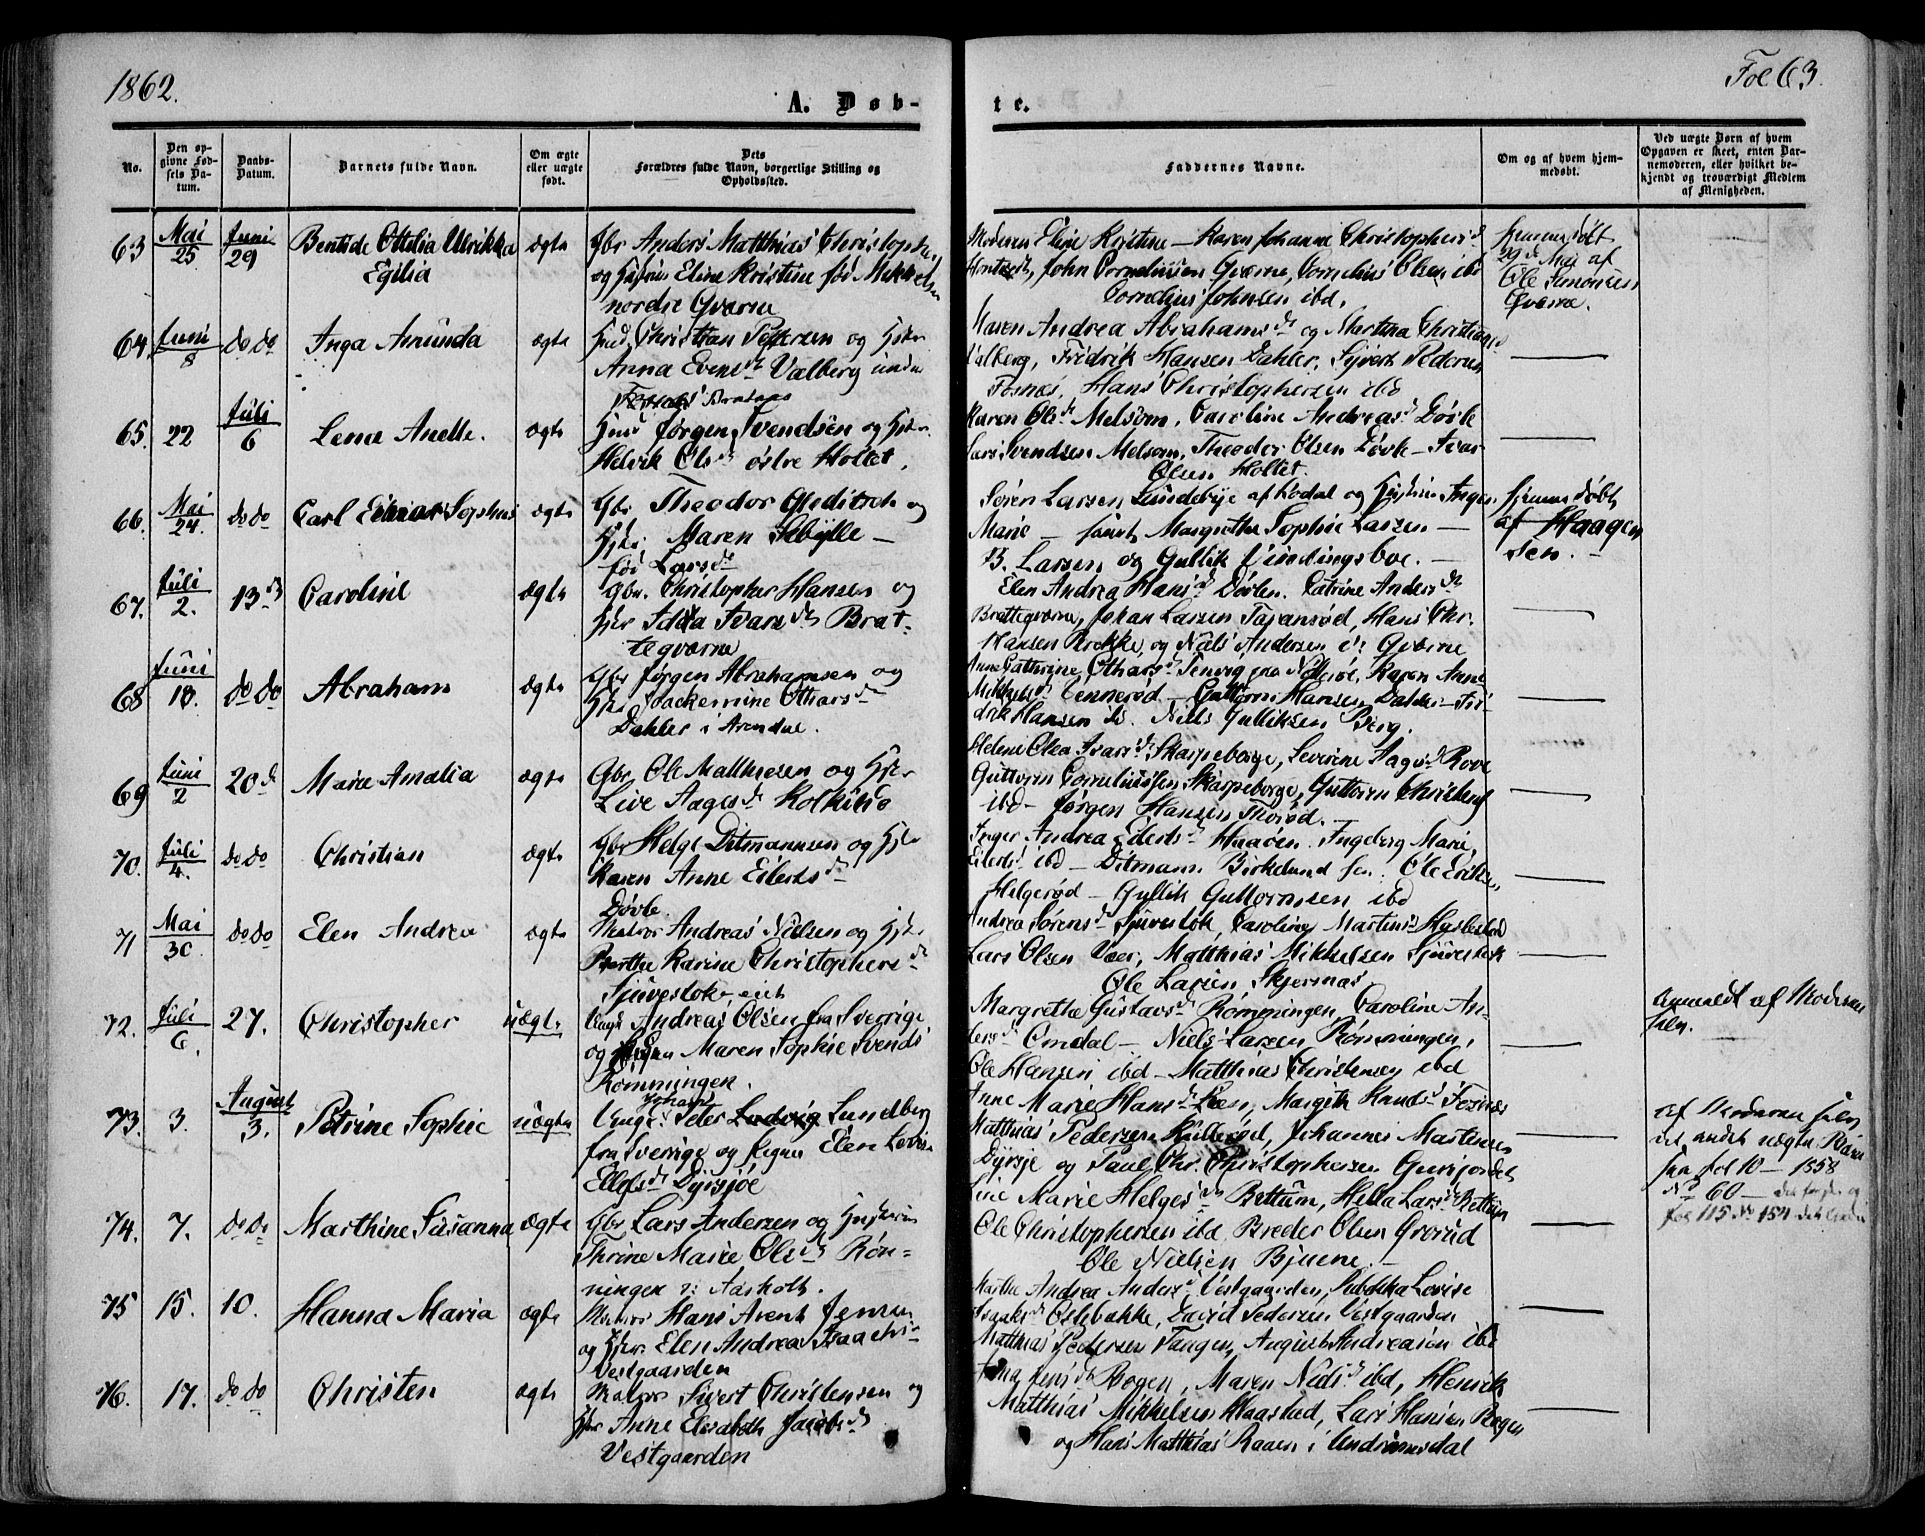 1862.
Fol 63.
A. Døb-
te.
No.
Den op-
givne Fød-
sels Da-
tum.
Daabs-
Datum.
Barnets fulde Navn.
Om ægte
eller uægte
født.
Dets
Forældres fulde Navn, borgerlige Stilling og
Opholdssted.
Faddernes Navne.
Om og af hvem hjem-
medøbt.
Ved uægte Børn af hvem
Opgaven er skeet, enten Bar-
nemoderen, eller hvilket be-
kjendt og troværdigt Medlem
af Menigheden.
63 Mai 25 Juni 29 Bentide Ottelia Ulrikka
Egilia
ægte
Gbr Anders Matthias Christophers
og Hustru Eline Kristine fød Mikkelsen
nordre Qværne
Moderen Eline Kristine — Karen Johanne Christophers d
John Corneliussen Qværne, Cornelius Olsen ibd
Cornelius Johnsen ibd.
hjemmedøbt
29 de Mai af
Ole Simonsen
Qværne.
64 Juni 8 do do Inga Amunda ægte
Christian Pettersen og Hustru
Anna Evens d Valberg under
Maren Andrea Abrahams d og Martina Christians d
Valberg, Fridrik Hansen Dahler, Sivert Pedersen
Fosnæs, Hans Christophersen ibd
65. 22 Juli 6 Lena Anette. ægte
Jørgen Svendsen og Hustr.
Helvik Ols d østre Holtet.
Karen Ols d Melsom, Caroline Andreas d Døvle
Lars Svendsen Melsom, Theodor Olsen Døvle — Ivar
Olsen Holtet.
66. Mai 24. do do Carl Einar Sophus ægte
Gbr Theodor Gleditsch og
Hstr. Maren Sibylle —
fød Lars d
Søren Larsen Lundebye af Kodal og Hustru Inger
Marie — samt Margrethe Sophie Larsen —
B. Larsen og Gullik Vindingsboe. —
hjemmedøbt
af Haagen
sen. —
67. Juli 2. 13 de Caroline ægte
Gbr. Christopher Hansen og
Hstr Idda Ivars d Brat-
tegværne
Elen Andrea Hans d Døvlen. Catrine Anders d
Brattegværne, Johan Larsen Taranrød, Hans Chr.
Hansen Brekke, og Nils Andersen v: Qværne
68 Juni 18. do do Abraham ægte
Gbr Jørgen Abrahamsen og
Hstr Jackemine Othars d
Dahler i Arendal.
Anne Cathrine Othars d Tenvig fra Nøterøe, Karen Anne
Mikkels d Lennerød — Guttorm Hansen Dahler — Fri-
drik Hansen do. Niels Gulliksen Berg.
69 Juni 2 20 de Marie Amalia ægte
Gbr Ole Matthiesen og Hstr
Live Aages d Kolkinø
Helene Olea Ivars d Skarpeborge, Severine Aages d Rove
Guttorm Corneliussen Skarpeborge, Guttorm Christens
ibd — Jørgen Hansen Thorød.
70. Juli 4. do do Christian ægte
Gbr Helge Ditmannsen og Hstr
Karen Anne Eilerts d
Døvle.
Inger Andrea Eilerts d Haaøen. Ingeborg Marie
Eilerts d ibd — Ditmann Birkelund sen. Ole Eriksen
Helgerød — Gullik Guttormsen ibd
71 Mai 30 do do Elen Andrea ægte
Matros Andreas Nielsen og Hstr
Berthe Karine Christophers d
Sjuvestok, eiet
Andrea Sørens d Sjuvestok, Caroline Martins d Hystestad
Lars Olsen Vær, Matthias Mikkelsen Sjuvestok
Ole Larsen Skjernæs
72. Juli 6. 27. Christopher uægte
Ungk. Andreas Olsen fra Sverrige
og Pigen Maren Sophie Svends
Rømmingen.
Margrethe Gustavs d Rømmingen, Caroline An-
ders d Omdal — Niels Larsen Rømmingen,
Ole Hansen ibd — Matthias Christensen ibd
Anmeldt af Moderen
selv.
73. 3. August 3. Petrine Sophie uægte
Ungk. Peter Johan Ludvig Lundberg
fra Sverrige og Pigen Elen Lovise
Ellefs d Dyrsjøe
Anne Marie Hans d Lien, Margith Knuds d Fosnæs
Matthias Pedersen Hullerød, Johannes Martinsen
Dyrsje og Paul Chr. Christophersen Gurijordet
af Moderen selv
det andet uægte Barn
sen fol 10 — 1858
No 60 —
fol 115 No 154
74. 7. do do Marthine Susanna ægte
Gbr Lars Andersen og Hustru
Thrine Marie Ols d Røn-
ningen v: Aasholt.
Line Marie Helges d Bettum, Helle Lars d Bettum
Ole Christophersen ibd Breder Olsen Grorud
Ole Nielsen Bjuene. —
75 15. 10. Hanna Maria ægte
Matros Hans Arent Jensen
og Hstr. Elen Andrea Isaachs d
Vestgaarden
Marthe Andrea Anders d Vestgaarden, Lovise
Isaaks d Ostebakke, David Pedersen Vestgaarden
Matthias Pedersen Tangen, August Andreasen ibd
76. 17. do do Christen ægte
Matros Sivert Christensen og
Hstr Anne Elisabeth Jacobs d
Vestgaarden
Jens d Bogen, Maren Nils d ibd, Henrik
Matthias Mikkelsen Haastad, Lars Hansen Bogen
og Hans Matthias Raaen i Andrimsdal